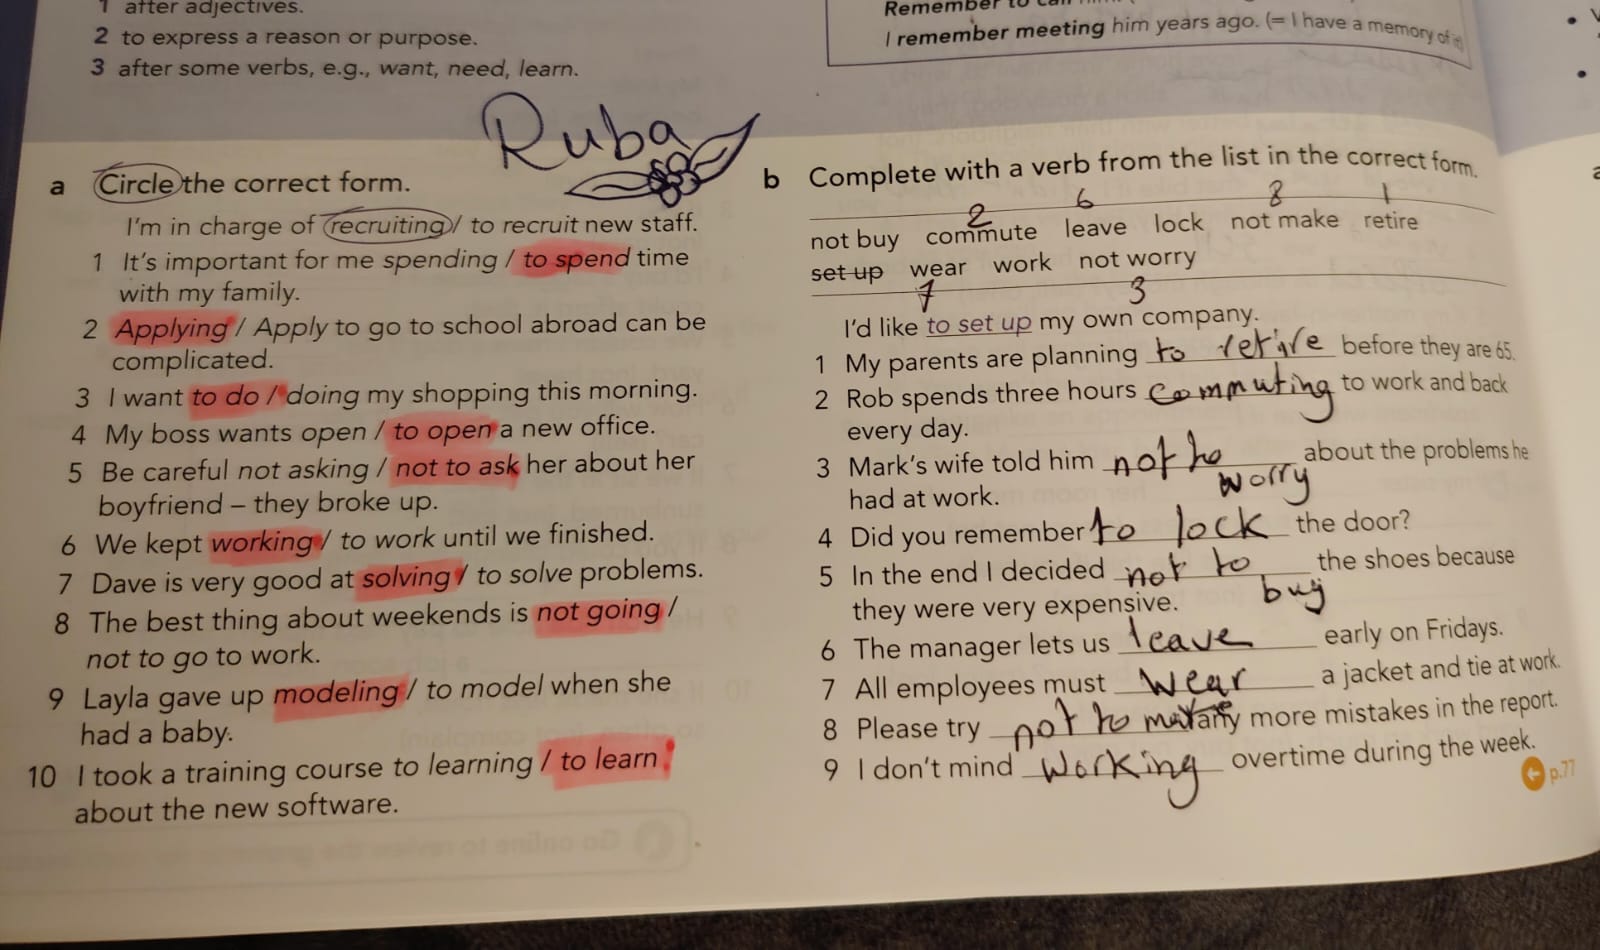 1 after adjectives.
2 to express a reason or purpose.
3 after some verbs, e.g., want, need, learn.
I remember meeting him years ago. (= I have a memory of it)
Ruba
a Circle the correct form.
I'm in charge of recruiting / to recruit new staff.
1 It's important for me spending / to spend time
with my family.
2 Applying / Apply to go to school abroad can be
complicated.
3 I want to do / doing my shopping this morning.
4 My boss wants open / to open a new office.
5 Be careful not asking / not to ask her about her
boyfriend – they broke up.
6 We kept working / to work until we finished.
7 Dave is very good at solving / to solve problems.
8 The best thing about weekends is not going /
not to go to work.
9 Layla gave up modeling / to model when she
had a baby.
10 I took a training course to learning / to learn
about the new software.
b Complete with a verb from the list in the correct form.
2 6 8 1
not buy commute leave lock not make retire
set up wear work not worry
7 3
I'd like to set up my own company.
1 My parents are planning to retire before they are 65.
2 Rob spends three hours commuting to work and back
every day.
3 Mark's wife told him not to worry about the problems he
had at work.
4 Did you remember to lock the door?
5 In the end I decided not to buy the shoes because
they were very expensive.
6 The manager lets us leave early on Fridays.
7 All employees must wear a jacket and tie at work.
8 Please try not to make any more mistakes in the report.
9 I don't mind working overtime during the week.
p.77